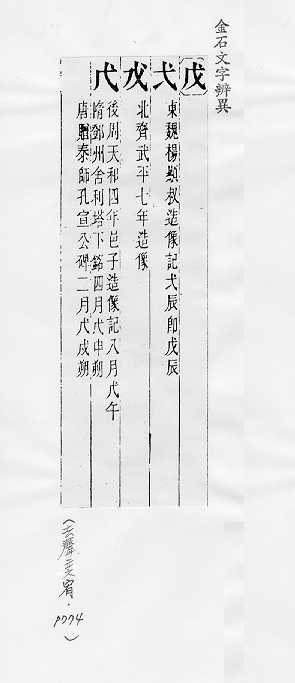 金石文字辨異
戊
弋 東魏楊顯叔造像記弋辰即戊辰
戊 北齊武平七年造像
代 後周天和四年邑子造像記八月代午
隋鄧州舍利塔下銘四月代申朔
唐贈泰師孔宣公碑二月代戌朔
(去聲 宥 P774)